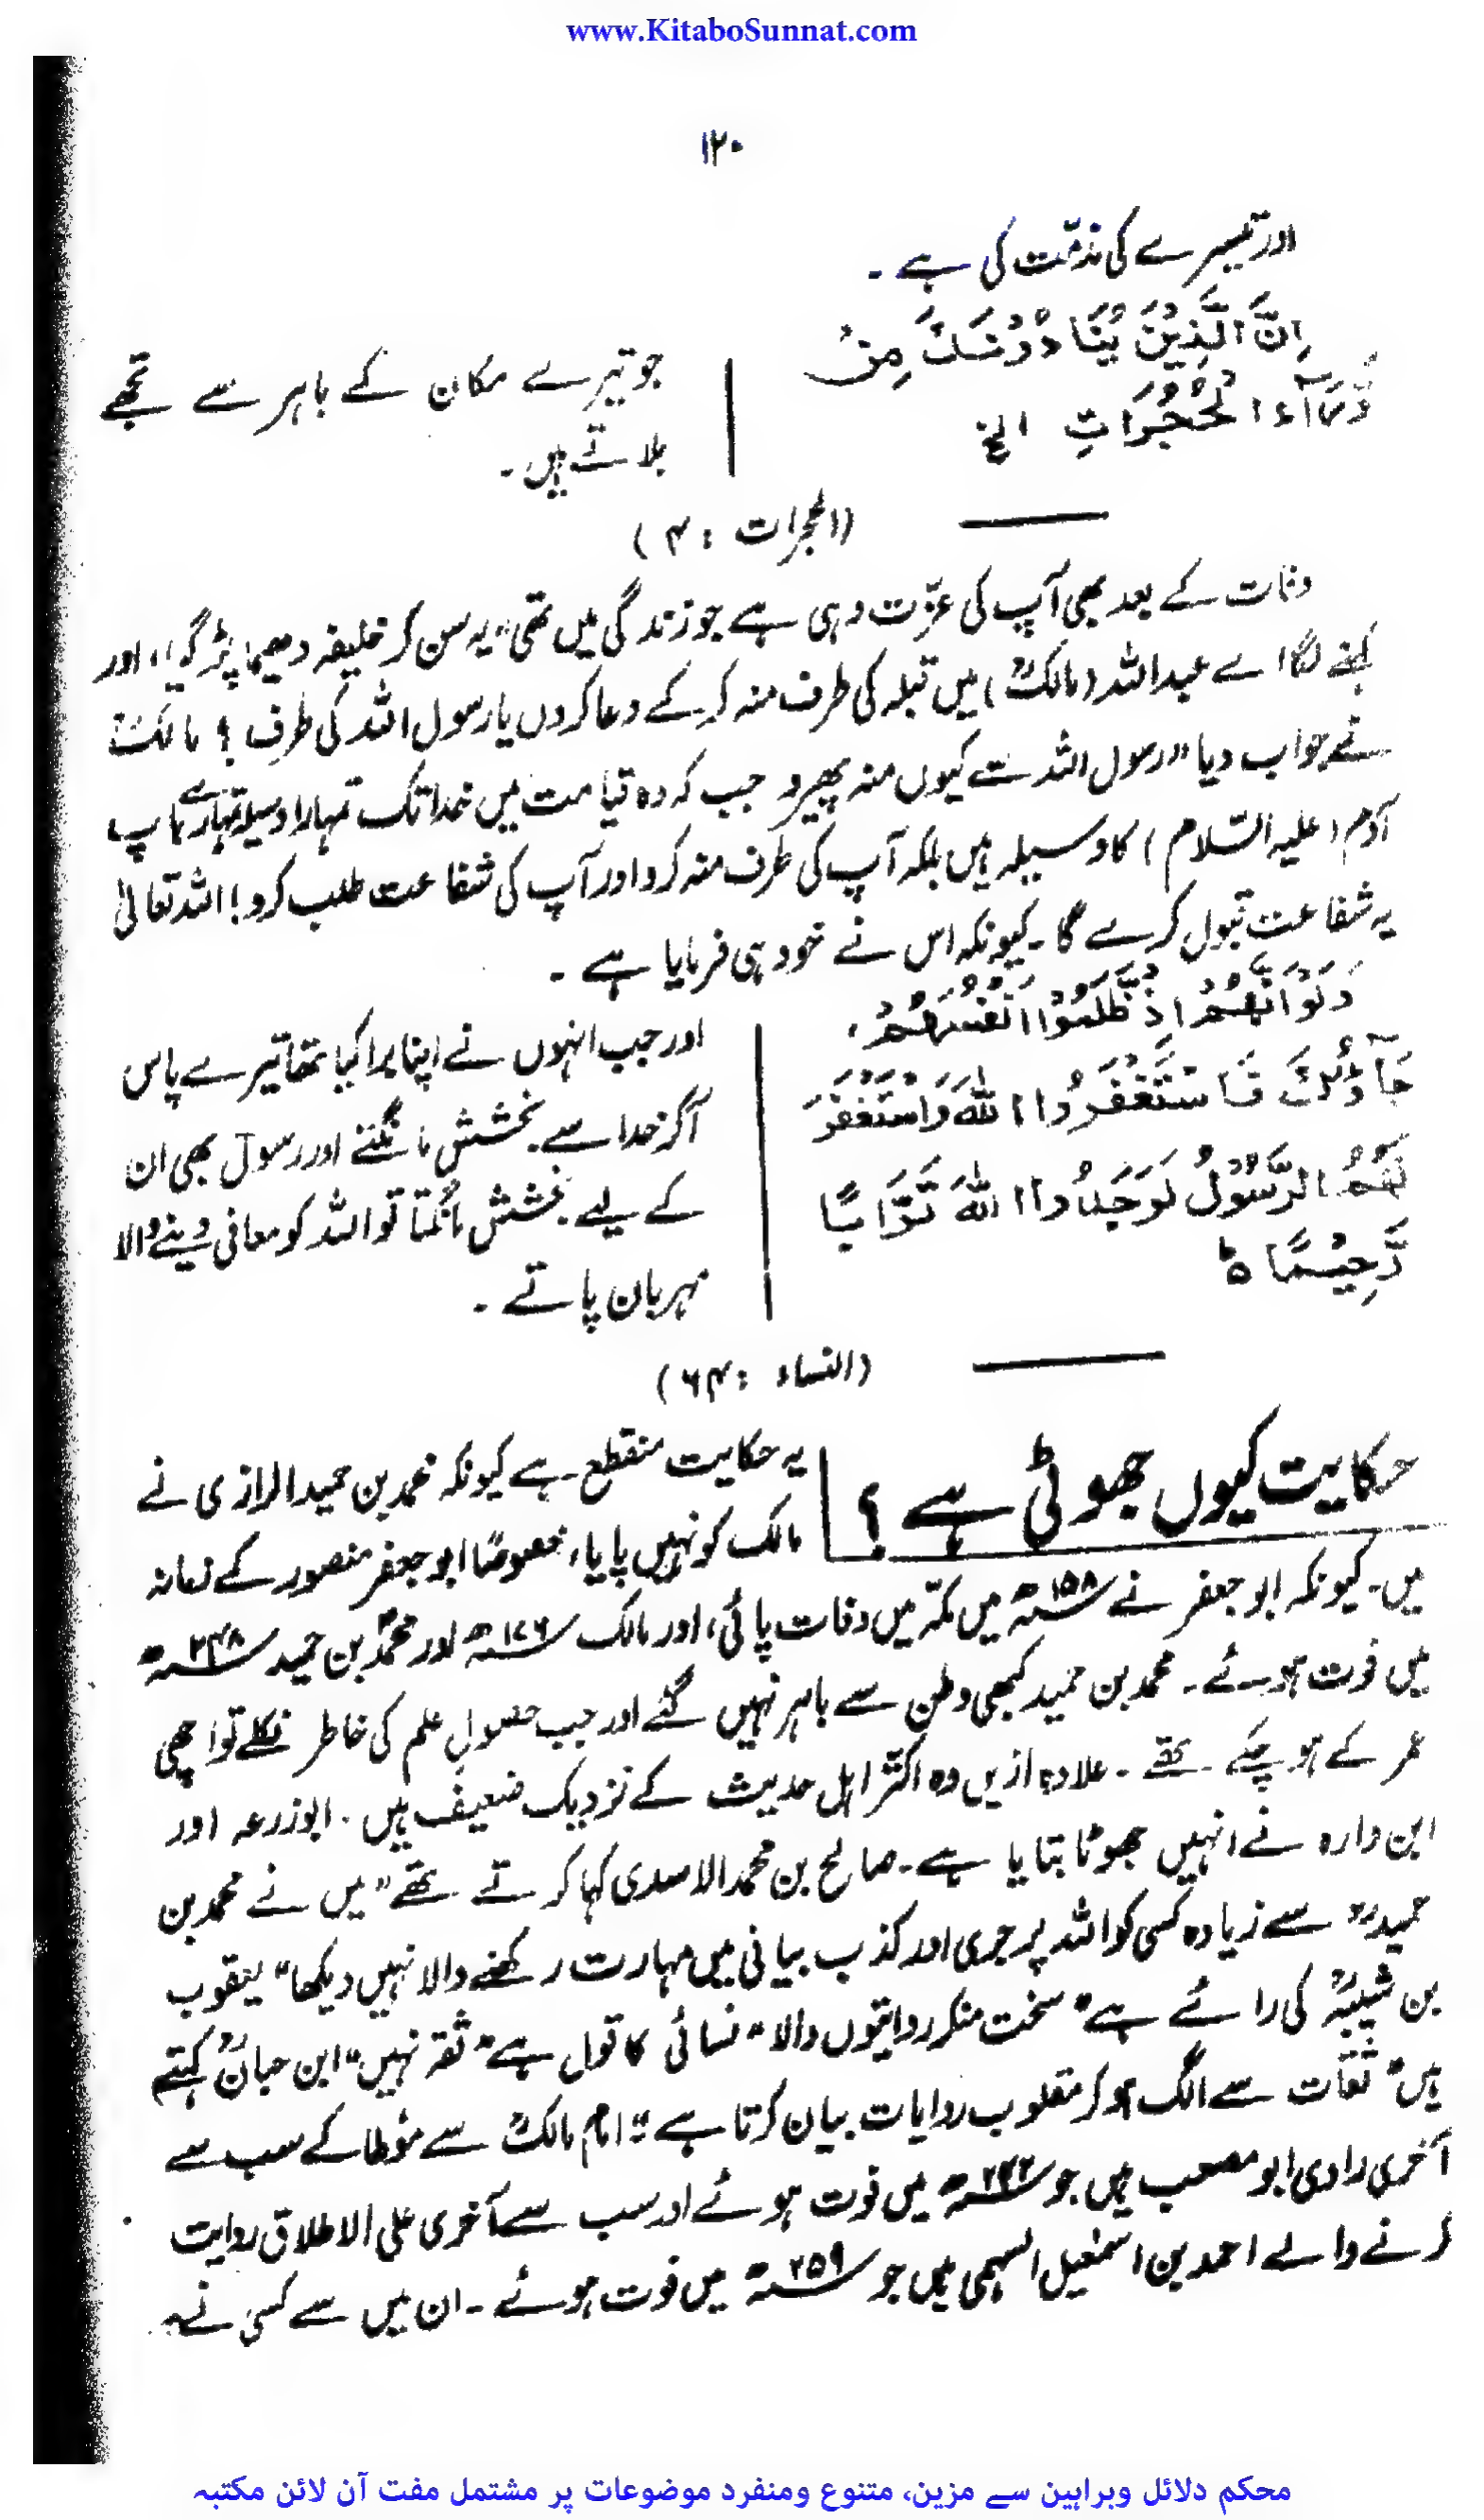 www.KitaboSunnat.com
۱۲۰
اور تیسرے کی مذمّت کی ہے ۔
اِنَّ الَّذِیْنَ یُنَادُوْنَکَ مِنْ
وَّرَآءِ الْحُجُرَاتِ الخ
جو تیرے مکان کے باہر سے تجھے
بلاتے ہیں ۔
(الحجرات : ۴)
وفات کے بعد بھی آپ کی عزّت وہی ہے جو زندگی میں تھی" یہ سن کر خلیفہ دھیما پڑ گیا، اور
کہنے لگا اے عبداللہ (مالکؒ) میں قبلہ کی طرف منہ کر کے دعا کروں یا رسول اللہ کی طرف ؟ مالکؒ
نے جواب دیا "رسول اللہ سے کیوں منہ پھیرو جب کہ وہ قیامت میں خدا تک تمہارا وسیلہ تمہارے باپ
آدم (علیہ السّلام) کا وسیلہ ہیں بلکہ آپ کی طرف منہ کرو اور آپ کی شفاعت طلب کرو! اللہ تعالیٰ
یہ شفاعت قبول کرے گا ۔ کیونکہ اس نے خود ہی فرمایا ہے ۔
وَلَوْ اَنَّهُمْ اِذْ ظَّلَمُوْا اَنْفُسَهُمْ
جَآءُوْکَ فَاسْتَغْفَرُوا اللہَ وَاسْتَغْفَرَ
لَهُمُ الرَّسُوْلُ لَوَجَدُوا اللہَ تَوَّابًا
رَّحِیْمًا ہ
اور جب انہوں نے اپنا برا کیا تھا تیرے پاس
آکر خدا سے بخشش مانگتے اور رسول بھی ان
کے لیے بخشش مانگتا تو اللہ کو معافی دینے والا
مہربان پاتے ۔
(النساء : ۶۴)
حکایت کیوں جھوٹی ہے ؟
یہ حکایت منقطع ہے کیونکہ محمد بن حمید الرازی نے
مالک کو نہیں پایا، خصوصًا ابو جعفر منصور کے زمانہ
میں ۔ کیونکہ ابو جعفر نے ۱۵۸ھ میں مکّہ میں وفات پائی، اور مالک ۱۷۶ھ اور محمدؒ بن حمید ۲۴۸ھ
میں فوت ہوئے ۔ محمد بن حمید کبھی وطن سے باہر نہیں گئے اور جب حصولِ علم کی خاطر نکلے تو اچھی
عمر کے ہو چکے تھے ۔ علاوہ ازیں وہ اکثر اہل حدیث کے نزدیک ضعیف ہیں ۔ ابوزرعہ اور
ابن وارہ نے انہیں جھوٹا بتایا ہے ۔ صالح بن محمد الاسدی کہا کرتے تھے "میں نے محمد بن
حمید سے زیادہ کسی کو اللہ پر جری اور کذب بیانی میں مہارت رکھنے والا نہیں دیکھا" یعقوب
بن شیبہؒ کی رائے ہے "سخت منکر روایتوں والا" نسائی کا قول ہے "ثقہ نہیں" ابن حبانؒ کہتے
ہیں "ثقات سے الگ ہو کر مقلوب روایات بیان کرتا ہے" امام مالکؒ سے مؤطا کے سب سے
آخری راوی ابو مصعب ہیں جو ۲۴۲ھ میں فوت ہوئے اور سب سے آخری علی الاطلاق روایت
کرنے والے احمد بن اسمٰعیل السہمی ہیں جو ۲۵۹ھ میں فوت ہوئے ۔ ان میں سے کسی نے
محکم دلائل وبراہین سے مزین، متنوع ومنفرد موضوعات پر مشتمل مفت آن لائن مکتبہ